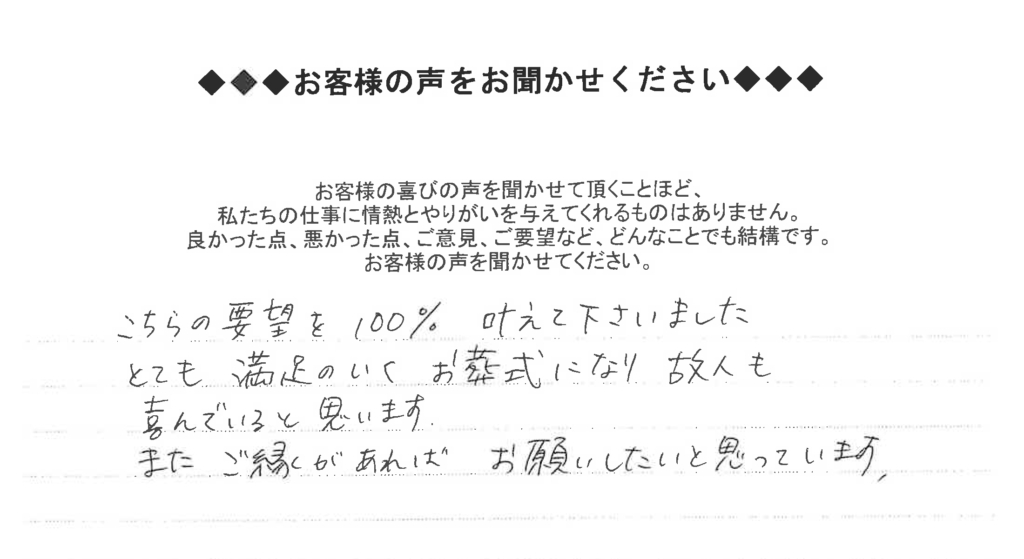 ◆◆◆お客様の声をお聞かせください◆◆◆
お客様の喜びの声を聞かせて頂くことほど、
私たちの仕事に情熱とやりがいを与えてくれるものはありません。
良かった点、悪かった点、ご意見、ご要望など、どんなことでも結構です。
お客様の声を聞かせてください。
こちらの要望を 100% 叶えて下さいました
とても 満足のいく お葬式になり 故人も
喜んでいると思います.
また ご縁があれば お願いしたいと思っています,